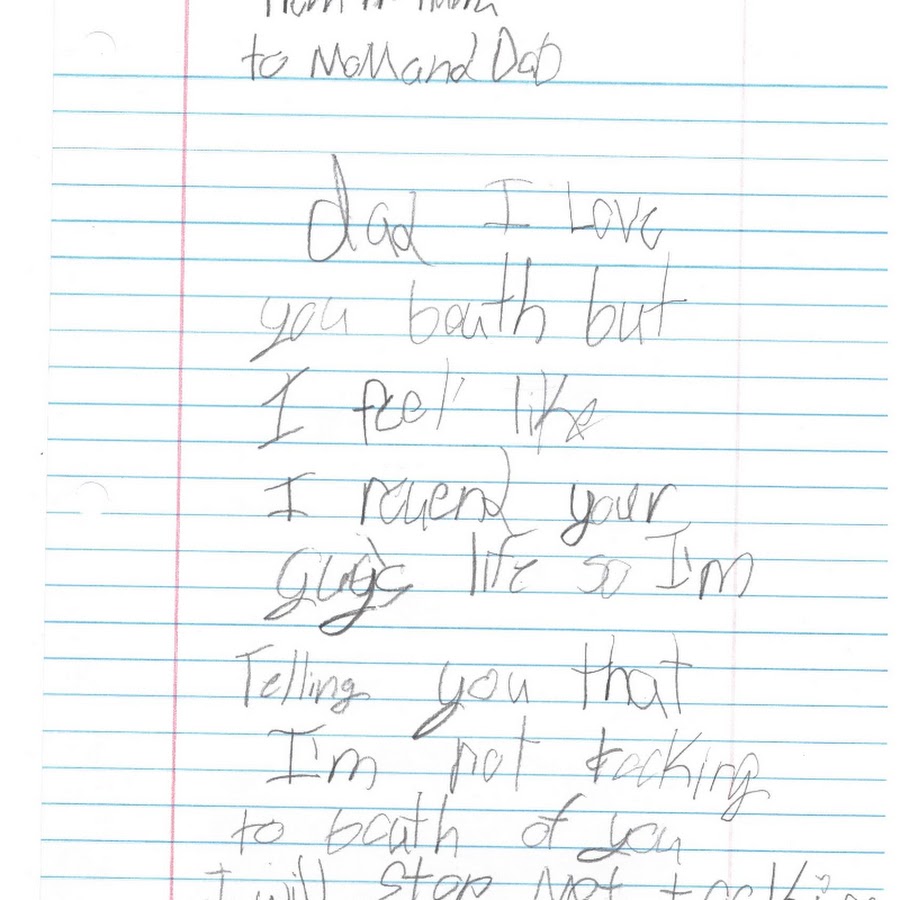 to MoM and DaD
dad I Love
you bouth but
I feel like
I rouend your
guys life so I'm
Telling you that
I'm not tocking
to bouth of you
I will stop not tocking